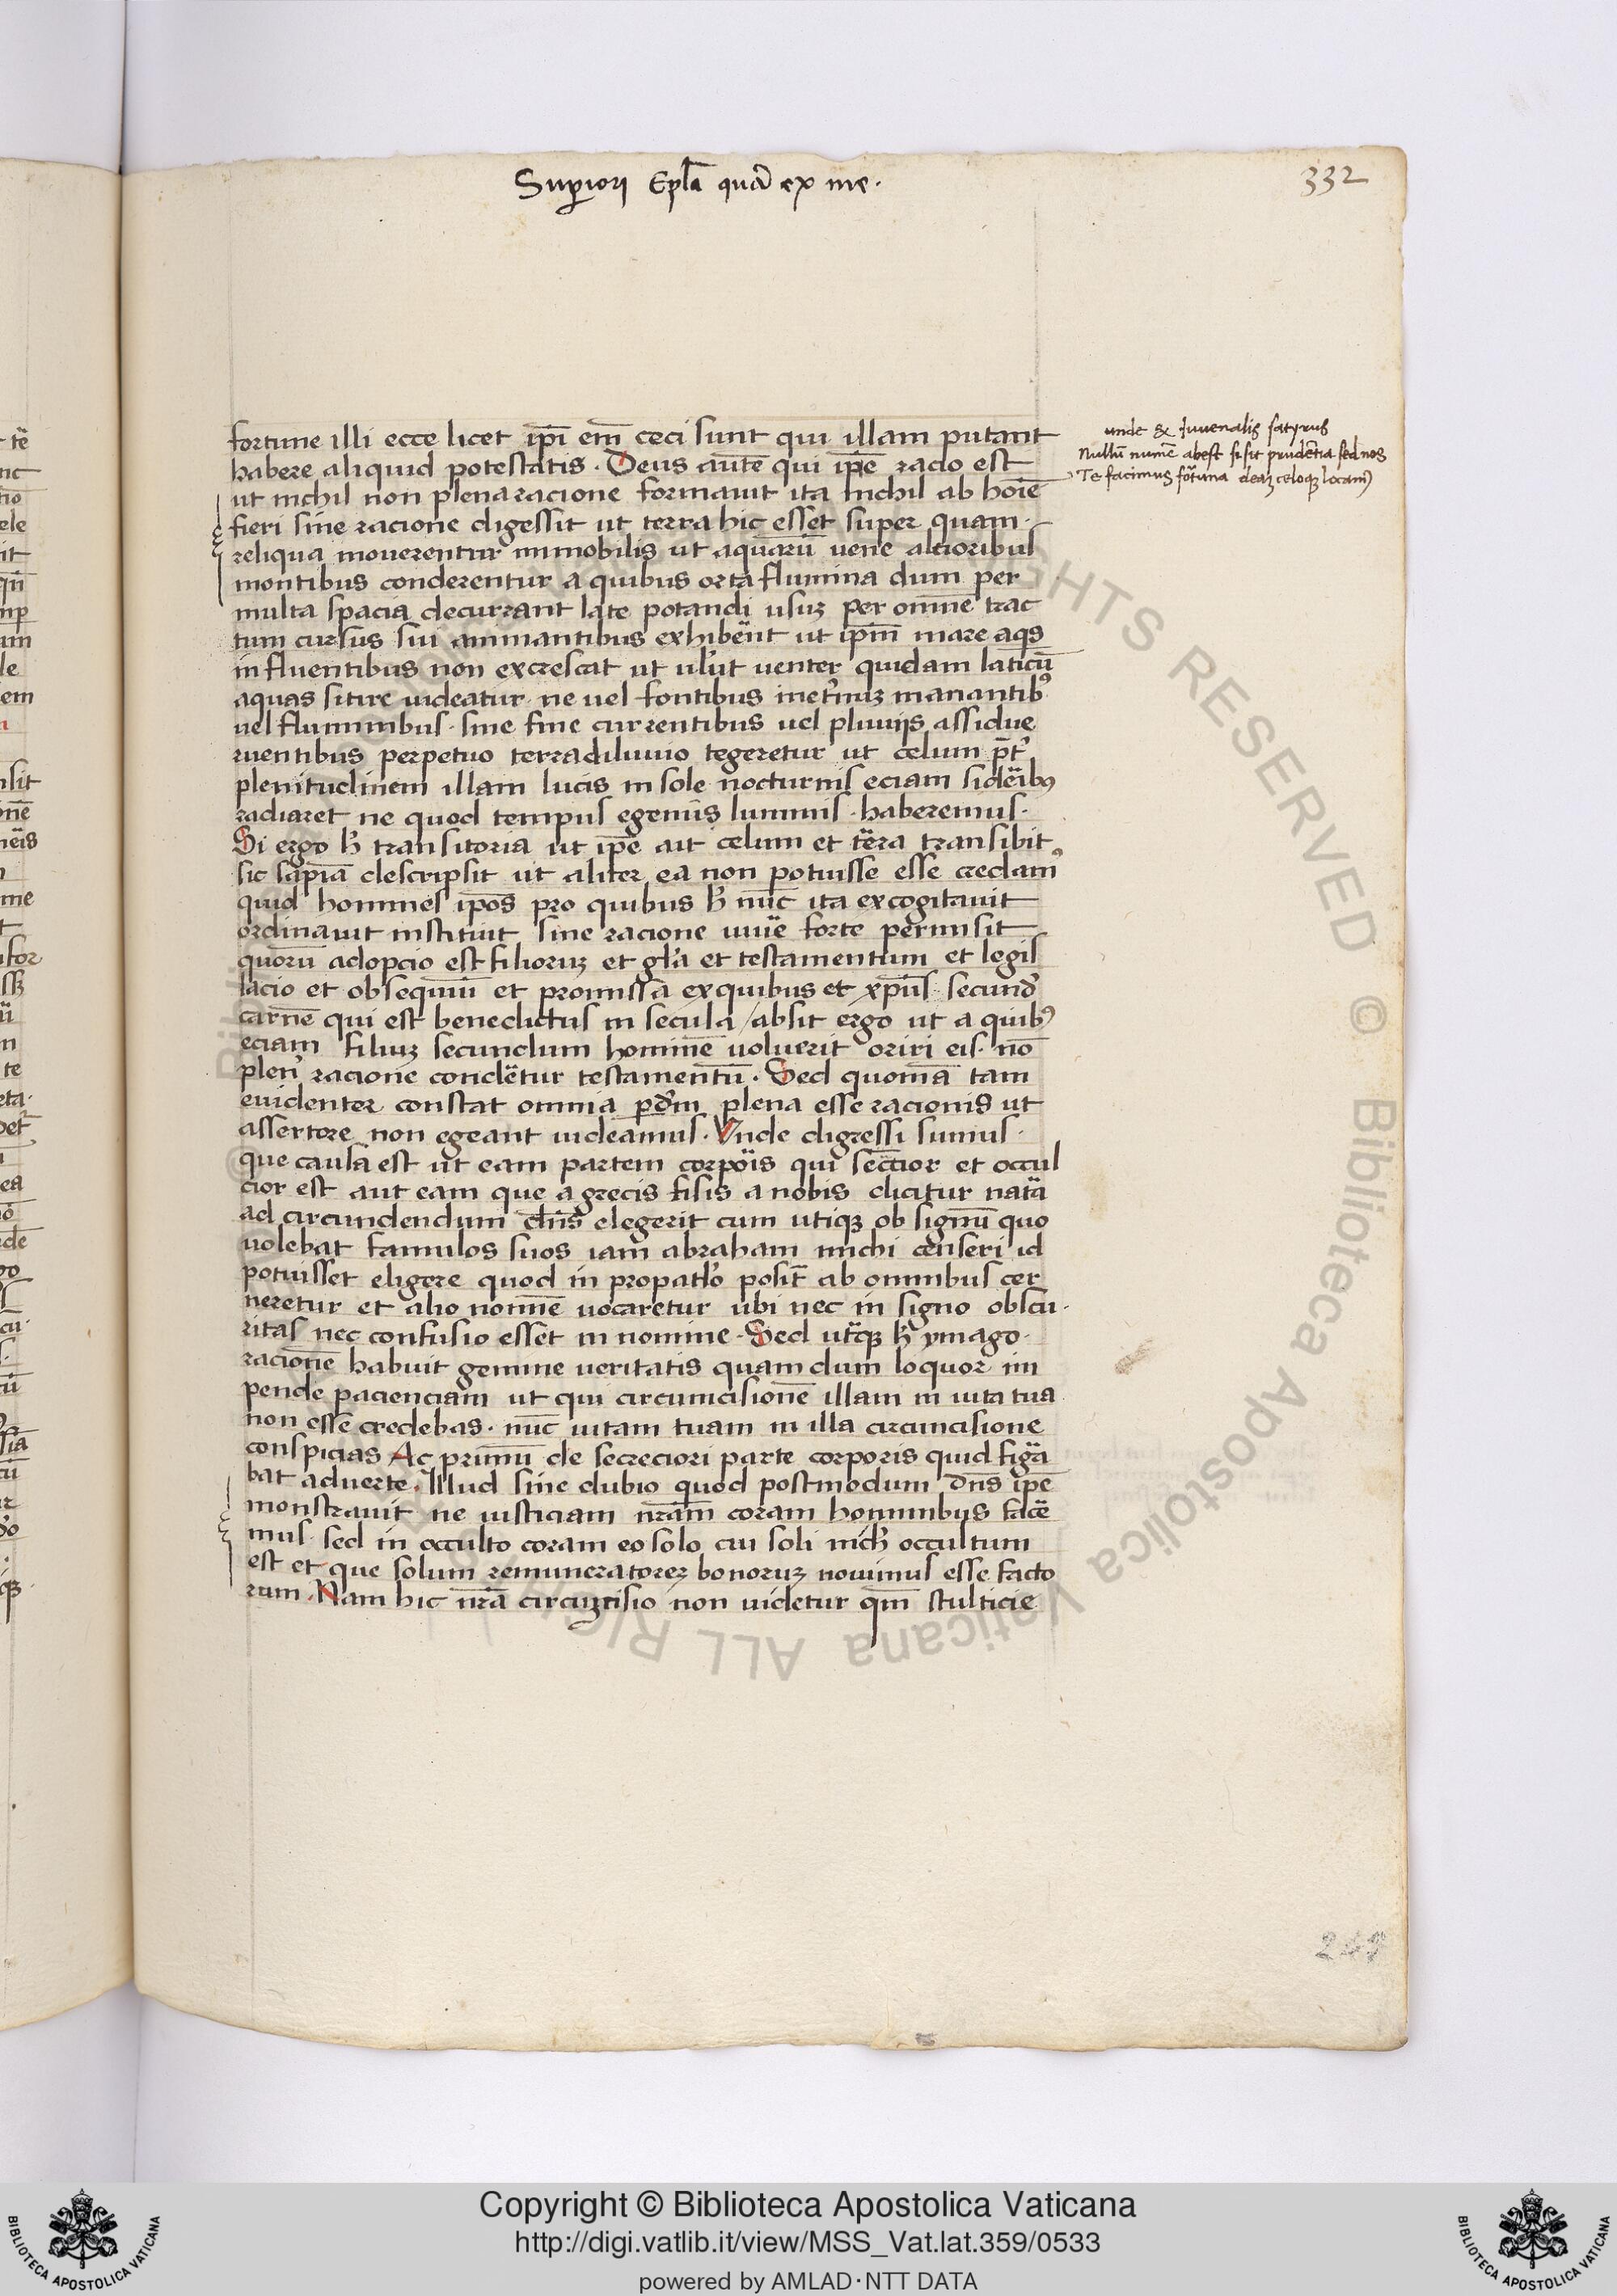 Sup̱iori Ep̄la quā ex me.
332
fortune illi ecce licet ip̄i em̄ ceci sunt qui illam putant
habere aliquid potestatis. Deus autē qui ip̄e racio est
ut nichil non plena racione formauit ita nichil ab hoīe
fieri sine racione digessit ut terra hic esset super quam.
reliqua mouerentur immobilis ut aquarū uene alcioribus
montibus conderentur a quibus orta flumina dum per
multa spacia decurrant late potandi usuʒ per omnē trac
tum cursus sui animantibus exhibent ut ip̄m mare aq̄s
influentibus non excrescat ut uelut uenter quidam laticū
aquas sitire uideatur. ne uel fontibus manantibꝰ
uel fluminibus. sine fine currentibus uel pluuijs assidue
ruentibus perpetuo terra diluuio tegeretur ut celum p̄t̓
plenitudinem illam lucis in sole nocturnis eciam siderībꝰ
radiaret ne quod tempus egenus luminis. haberemus.
Si ergo h̄ transitoria ut ip̄e ait celum et terra transibit
sic sapiā descripsit ut aliter ea non potuisse esse credamꝰ
quid homines ip̄os pro quibus h̄ nūc ita excogitauit
ordinauit instituit sine racione uiuē forte permisit
quorū adopcio est filioruʒ et gl̄a et testamentum et legis
lacio et obsequiū et promissa ex quibus et xp̄us secund̓
carnē qui est benedictus in secula / absit ergo ut a quibꝰ
eciam filiuʒ secundum hominē uoluerit oriri eis. nō
pleni racione condētur testamentū. Sed quoniā tam
euidenter constat omnia p̱ dm̄ plena esse racionis ut
assertore non egeant uideamus. Vnde digressi sumus.
que causa est ut eam partem corpōis qui secrecior et occul
cior est aut eam que a grecis fisis a nobis dicitur natā
ad circundendum dn̄s elegerit cum utiqꝫ ob signū quo
uolebat famulos suos iam abraham michi censeri id
potuisset eligere quod in propatlo posit̄ ab omnibus cer
neretur et alio nomīe uocaretur ubi nec in signo obscu.
ritas nec confusio esset in nomine. Sed utīqꝫ h̄ ymago.
racionē habuit gemine ueritatis quam dum loquor im
pende pacienciam ut qui circumcisionē illam in uita tua
non esse credebas. nūc uitam tuam in illa circumcisione
conspicias Ac primū de secreciori parte corporis quid figūa
bat aduerte. Illud sine dubio quod postmodum dn̄s ip̄e
monstrauit ne iusticiam nr̄am coram hominibus facē
mus. sed in occulto coram eo solo cui soli nich̓ occultum
est et que solum remuneratoreʒ bonoruʒ nouimus esse facto
rum. Nam hic nr̄a circuʒcisio non uidetur qm̄ stulticie
unde & Juuenalis satyrus
Nullū numē abest si sit prudētia sed nos
Te facimus fōtuna deaʒ celoqꝫ locamꝰ
249
Copyright © Biblioteca Apostolica Vaticana
http://digi.vatlib.it/view/MSS_Vat.lat.359/0533
powered by AMLAD·NTT DATA